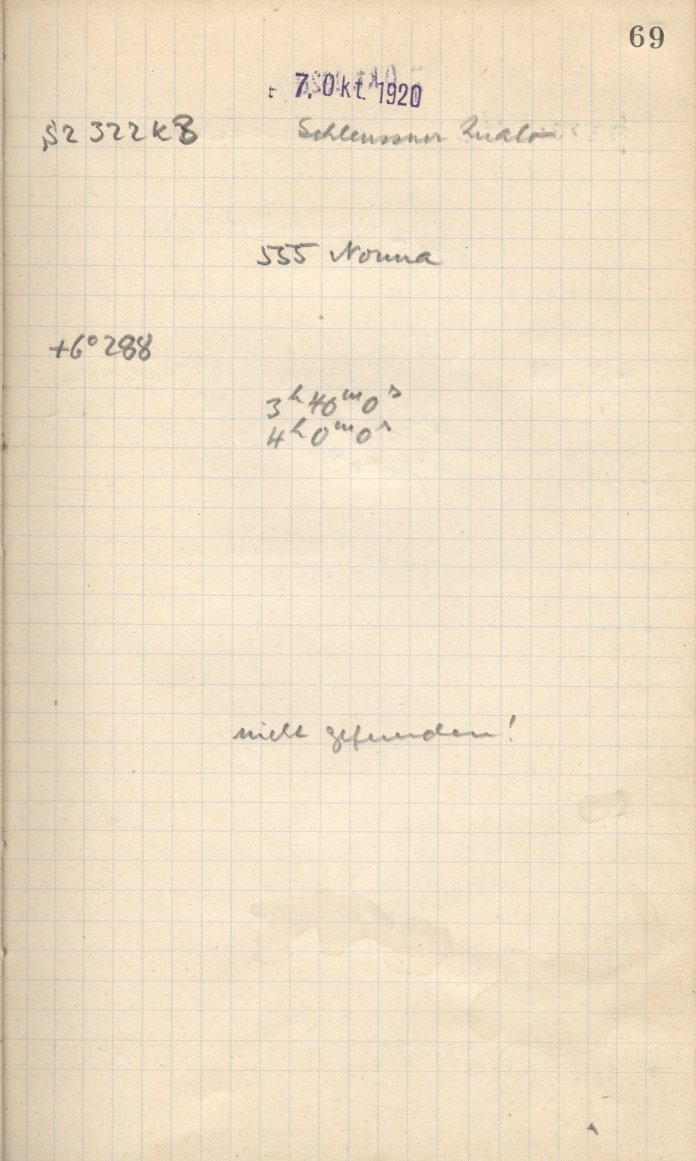 69
7. Okt. 1920
S2 322 K8 Schleussner
555 Norma
+6° 288
3ʰ 40ᵐ 0ˢ
4ʰ 0ᵐ 0ˢ
nicht gefunden!